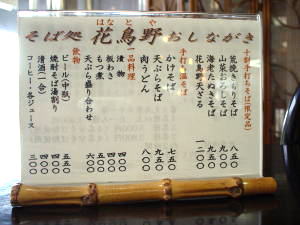 はなとや
そば処 花鳥野 おしながき
十割手打ちそば(限定品)
荒挽きもりそば 八五〇
山菜おろしそば 九五〇
海老たぬきそば 九五〇
花鳥野天ざる 一二〇〇
手打ち温そば
かけそば 七五〇
天ぷらそば
肉うどん 八〇〇
一品料理
漬物 四〇〇
板わさ 四〇〇
もつ煮 五〇〇
天ぷら盛り合わせ 六〇〇
飲物
ビール(中瓶) 五五〇
焼酎そば湯割り 五五〇
清酒(一合) 四〇〇
コーヒー・各ジュース 三〇〇